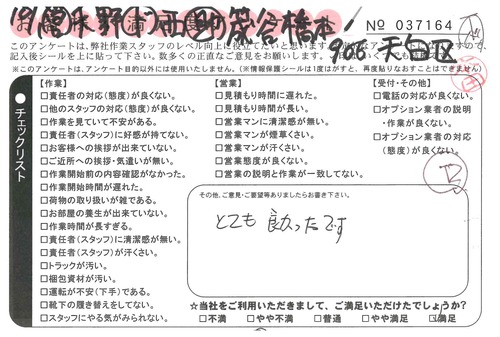 No 037164
9.06 天白区
このアンケートは、弊社作業スタッフのレベル向上に役立てたいと思います。
記入後シールを上に貼って下さい。数多くの正直なご意見をお願いします。
※このアンケートは、アンケート目的以外には使用いたしません。(※情報保護シールは1度はがすと、再度貼りなおすことはできません)
チェックリスト
【作業】
□責任者の対応(態度)が良くない。
□他のスタッフの対応(態度)が良くない。
□作業を見ていて不安がある。
□責任者(スタッフ)に好感が持てない。
□お客様への挨拶が出来ていない。
□ご近所への挨拶・気遣いが無い。
□作業開始前の内容確認がなかった。
□作業開始時間が遅れた。
□荷物の取り扱いが雑である。
□お部屋の養生が出来ていない。
□作業時間が長すぎる。
□責任者(スタッフ)に清潔感が無い。
□責任者(スタッフ)が汗くさい。
□トラックが汚い。
□梱包資材が汚い。
□運転が不安(下手)である。
□靴下の履き替えをしてない。
□スタッフにやる気がみられない。
【営業】
□見積もり時間に遅れた。
□見積もり時間が長い。
□営業マンに清潔感が無い。
□営業マンが煙草くさい。
□営業マンが汗くさい。
□営業態度が良くない。
□営業の説明と作業が一致してない。
【受付・その他】
□電話の対応が良くない。
□オプション業者の説明
・作業が良くない。
□オプション業者の対応
(態度)が良くない。
その他、ご意見・ご要望等ありましたらお書き下さい。
とても良かったです
☆当社をご利用いただきまして、ご満足いただけたでしょうか?
□不満 □やや不満 □普通 □やや満足 ☑満足